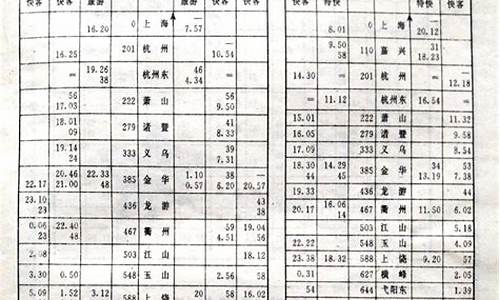 快客 快客 旅游 旅游 快客 快客
16.20 0 上海 — 7.57
16.25 201 杭州 — 10.54
= 19.26 杭州东 46 =
38 4.34
56 222 萧山 56
17.03 9.50
18.01 279 诸暨 41
09 8.33
19.14 333 义乌 39
24 7.31
20.46 22.33 385 金华 1.10 38
22.17 21.00 48 0.57 6.20 20.57
23.10 436 龙游 43
23 38
0.06 22.40 467 衢州 59 19.04
23 48 4.51 56
2.08 503 江山 18.12
3.30 0.50 548 玉山 2.56 58
5.09 1.52 3.12 588 上饶 20 58 16.02
快客 特快 特快 快客
8.01 0 上海 — 20.12
9.50 110 嘉兴 31
58 18.23
14.30 = 201 杭州 = — 12.18
= 11.12 杭州东 16.54 =
15.01 222 萧山 11.32
17.01 279 诸暨 9.58
17.09 333 义乌 8.54
18.30 14.29 385 金华 34 53
44 45 13.19 7.38
19.33 436 龙游 44
20.17 16.06 467 衢州 11.50 6.02
14
503 江山 5.18
22.22 548 玉山 4.09
23.38 18.32 588 上饶 9.20 57
0.31 627 横峰 2.05
54 644 弋阳东 1.39